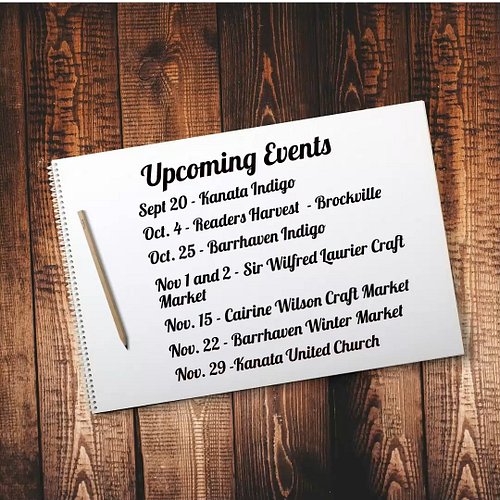 Upcoming Events
Sept 20 - Kanata Indigo
Oct. 4 - Readers Harvest - Brockville
Oct. 25 - Barrhaven Indigo
Nov 1 and 2 - Sir Wilfred Laurier Craft
Market
Nov. 15 - Cairine Wilson Craft Market
Nov. 22 - Barrhaven Winter Market
Nov. 29 -Kanata United Church